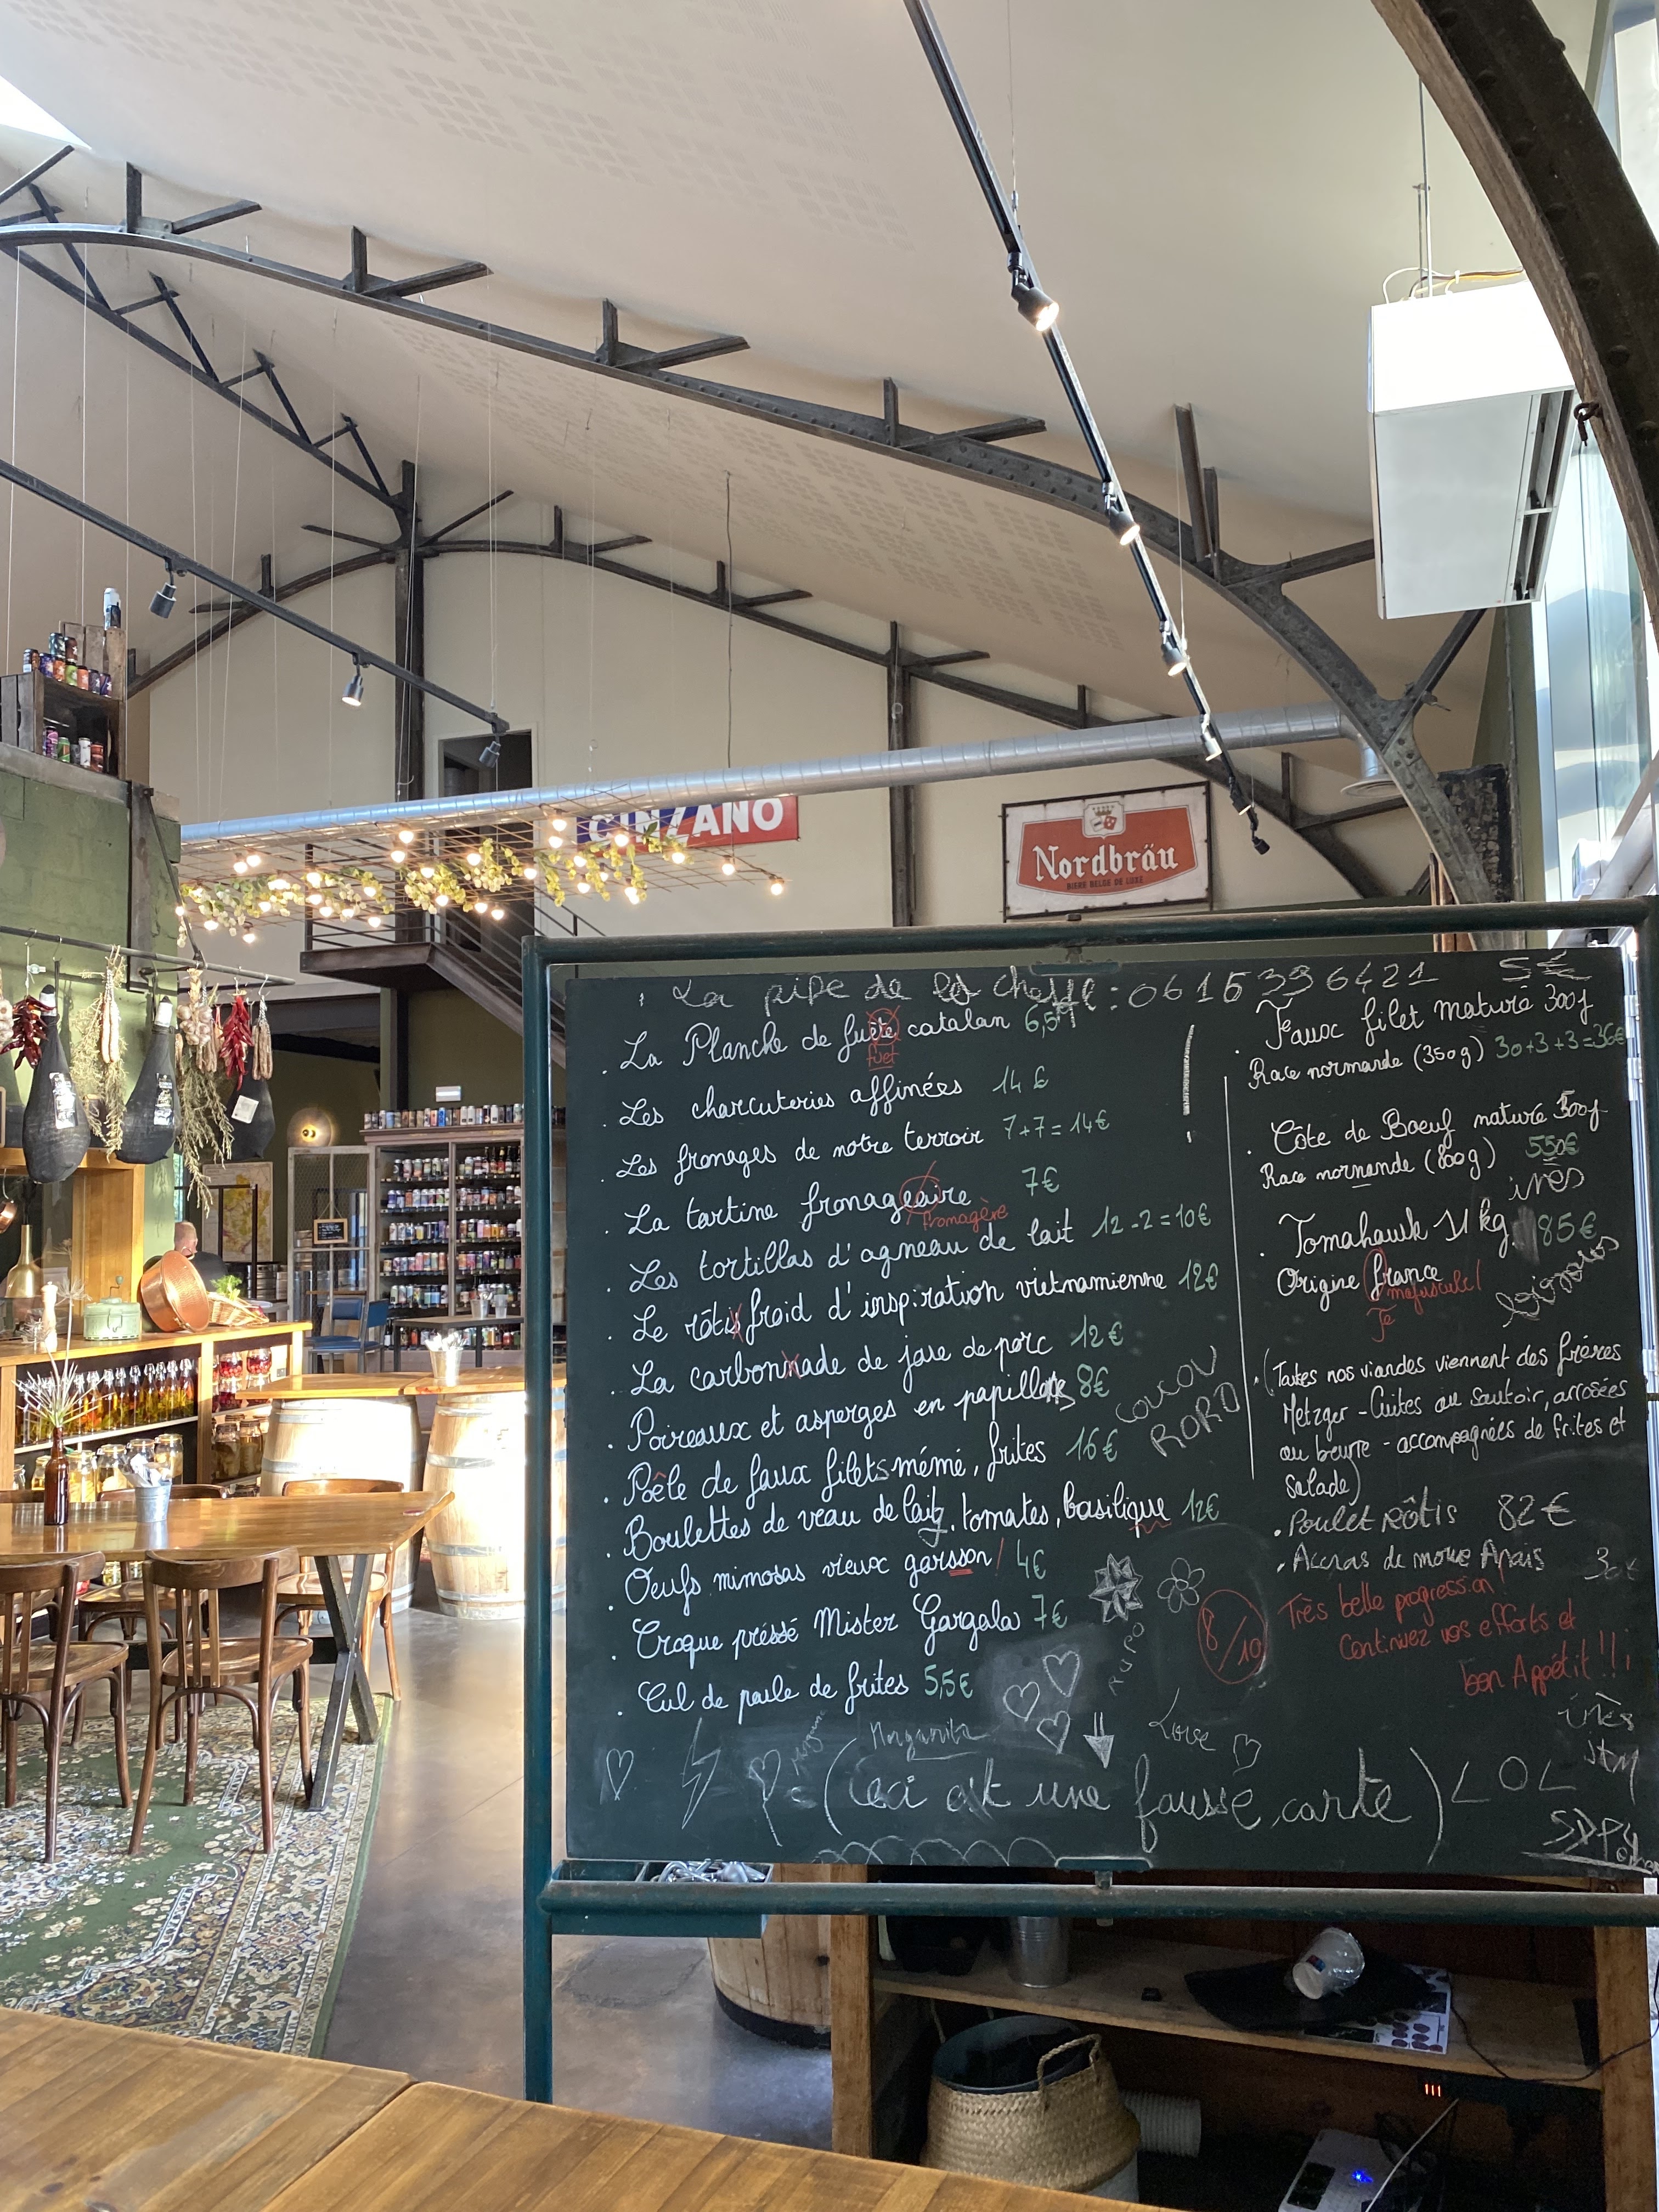 CINZANO
Nordbräu
BIERE BELGE DE LUXE
La pipe de la cheffe : 0615336421 5€
. La Planche de fuête catalan 6,5
fuet
. Les charcuteries affinées 14 €
. Les fromages de notre terroir 7+7=14€
. La tartine fromageaire 7€
fromagère
. Les tortillas d'agneau de lait 12-2=10€
. Le rôtis froid d'inspiration vietnamienne 12€
. La carbonnade de joue de porc 12€
. Poireaux et asperges en papillotes 8€
. Poêle de faux filets mémé, frites 16€
. Boulettes de veau de lait, tomates, basilique 12€
. Oeufs mimosas vieux garsson ! 4€
. Croque préssé Mister Gargala 7€
. Cul de poule de frites 5,5€
COUCOU
RORO
. Faux filet maturé 300g
Race normande (350g) 30+3+3=36€
. Côte de Boeuf maturé 500g
Race normande (800g) 550€
inès
. Tomahawk 1,1 kg 85€
Origine france
majuscule!
(Toutes nos viandes viennent des frères
Metzger - Cuites au sautoir, arrosées
au beurre - accompagnées de frites et
salade)
. Poulet Rôtis 82€
. Accras de morue Anaïs 30€
8/10
Très belle progression !
Continuez vos efforts et
bon Appétit !!!
inès
Margarita
Love
(Ceci est une fausse carte) LOL